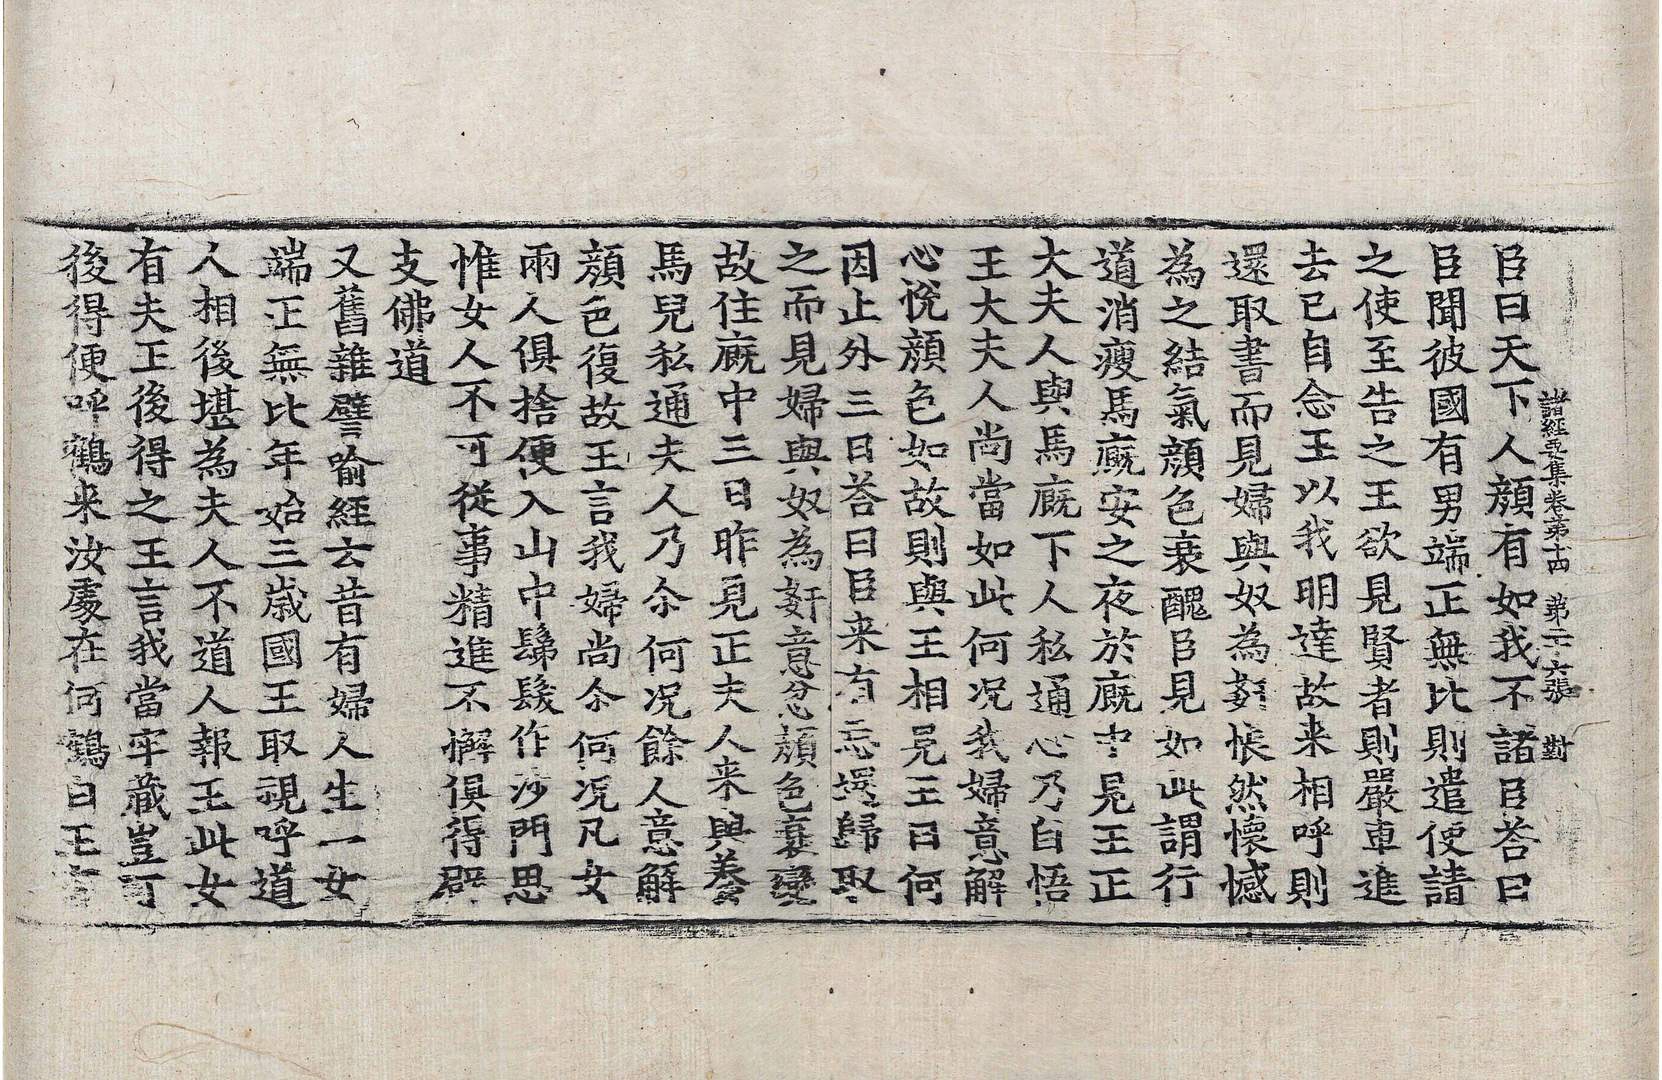 諸經要集卷第十四 第二十六張 對
臣曰天下人顔有如我不諸臣荅曰
臣聞彼國有男端正無比則遣使請
之使至告之王欲見賢者則嚴車進
去已自念王以我明達故来相呼則
還取書而見婦與奴為姧悵然懷憾
為之結氣顔色衰醜臣見如此謂行
道消瘦馬廐安之夜於廐中見王正
大夫人與馬廐下人私通心乃自悟
王大夫人尚當如此何况我婦意解
心悅顔色如故則與王相見王曰何
因止外三日荅曰臣来有忘還歸取
之而見婦與奴為姧意忿顔色衰變
故住廐中三日昨見正夫人来與養
馬兒私通夫人乃尒何况餘人意解
顔色復故王言我婦尚尒何况凡女
兩人俱捨便入山中鬄髮作沙門思
惟女人不可從事精進不懈俱得辟
支佛道
又舊雜譬喻經云昔有婦人生一女
端正無比年始三歲國王取視呼道
人相後堪為夫人不道人報王此女
有夫王後得之王言我當牢藏豈可
後得便呼鶴来汝處在何鶴白王言